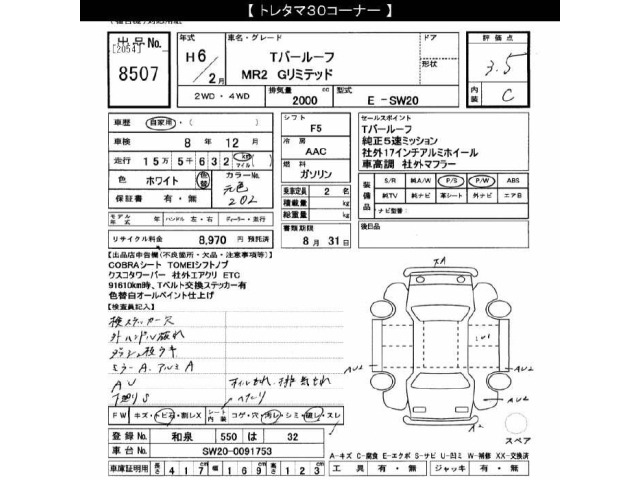 【 トレタマ30コーナー 】
出品No.
[2054]
8507
年式
H6/2月
車名・グレード
Tバールーフ
MR2 Gリミテッド
ドア
形状
2WD・4WD
排気量
2000 cc
型式
E-SW20
評価点
3.5
内装
C
車歴 自家用・( )
車検 8年 12月
走行 15万5千632 km マイル
色 ホワイト 色替 カラーNo. 元色 202
保証書 有・無
モデル年式 年 ハンドル 左・右 ディーラー・並行
リサイクル料金 8,970 円 預託済
シフト
F5
冷房
AAC
燃料
ガソリン
乗車定員 2 名
積載量 kg
総重量 kg
書類期限
8月 31日
セールスポイント
Tバールーフ
純正5速ミッション
社外17インチアルミホイール
車高調 社外マフラー
装備品
S/R 純A/W P/S P/W ABS
純TV 純ナビ 革シート 外ナビ エアB
ナビ型番:
後日品
【出品店申告欄(不良箇所・欠品・注意事項等)】
COBRAシート TOMEIシフトノブ
クスコタワーバー 社外エアクリ ETC
91610km時、Tベルト交換ステッカー有
色替白オールペイント仕上げ
【検査員記入】
検ステッカー欠
外ハンドル破れ
ダッシュ板ウキ
ミラーA、アルミA
AU
下廻りS
オイルもれ、排気もれ
へたり
FW キズ・トビ石・割レX
シート内装 コゲ・穴・汚レ・シミ・破レ・スレ
AA
AU2
AU2
A2
スペア
登録No. 和泉 550 は 32
車台No. SW20-0091753
車庫証明用 長さ 417 幅 169 高さ 123
A-キズ C-腐食 E-エクボ S-サビ U-凹ミ W-補修 XX-交換済
工具 有・無 ジャッキ 有・無